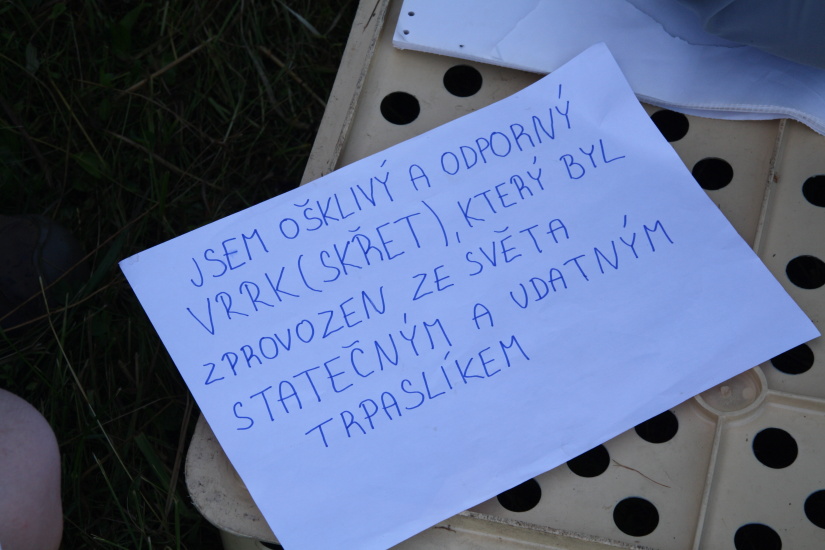 JSEM OŠKLIVÝ A ODPORNÝ
VRRK (SKŘET), KTERÝ BYL
ZPROVOZEN ZE SVĚTA
STATEČNÝM A UDATNÝM
TRPASLÍKEM